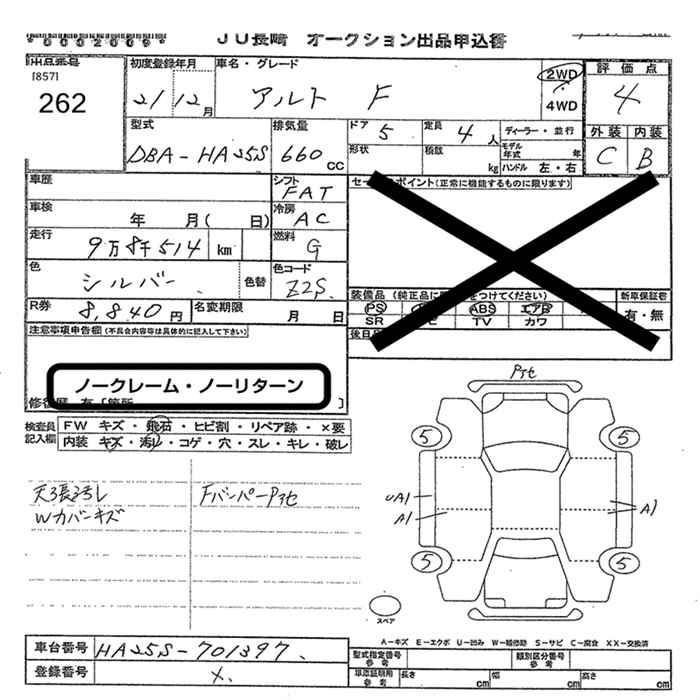 *0002009*
JU長崎 オークション出品申込書
出品番号
[857]
262
初度登録年月
21/12月
車名・グレード
アルト F
2WD
4WD
評価点
4
外装 内装
C B
型式
DBA-HA25S
排気量
660cc
ドア 5
定員 4人
ディーラー・並行
形状
積数
kg
モデル年式 年
ハンドル 左・右
車歴
シフト
FAT
セールスポイント(正常に機能するものに限ります)
車検
年 月( 日)
冷房
AC
走行
9万8千514 km
燃料
G
色
シルバー
色替
色コード
Z2S
装備品(純正品に をつけてください)
新車保証書
PS ABS エアB
SR TV カワ
有・無
R券
8,840円
名変期限
月 日
後日
注意事項申告欄(不具合内容等は具体的に記入して下さい)
ノークレーム・ノーリターン
修復歴 有〔箇所 〕
検査員記入欄
FW キズ・飛石・ヒビ割・リペア跡・×要
内装 キズ・汚れ・コゲ・穴・スレ・キレ・破レ
天張汚レ
Wカバーキズ
FバンパーPアセ
Pアセ
5 5
UA1
A1 A1
5 5
スペア
A-キズ E-エクボ U-凹み W-補修跡 S-サビ C-腐食 XX-交換済
車台番号
HA25S-701397
登録番号
×
型式指定番号
参考
類別区分番号
参考
車庫証明用
参考
長さ cm
幅 cm
高さ cm